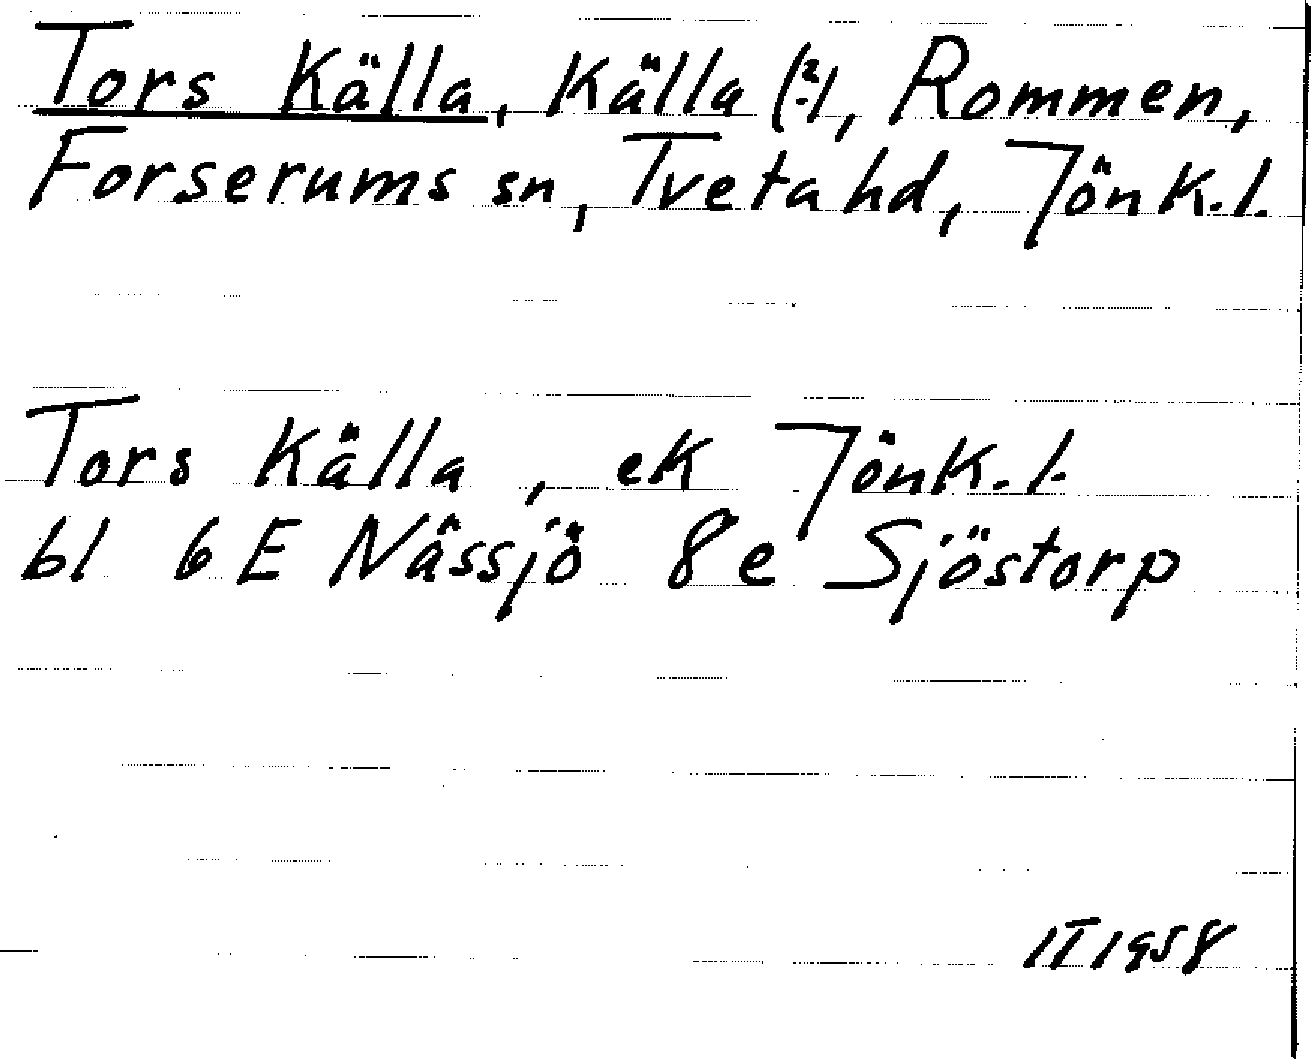 Tors Källa, Källa (?), Rommen,
Forserums sn, Tveta hd, Jönk.l.
Tors Källa, ek Jönk.l.
bl 6E Nässjö 8e Sjöstorp
II 1958